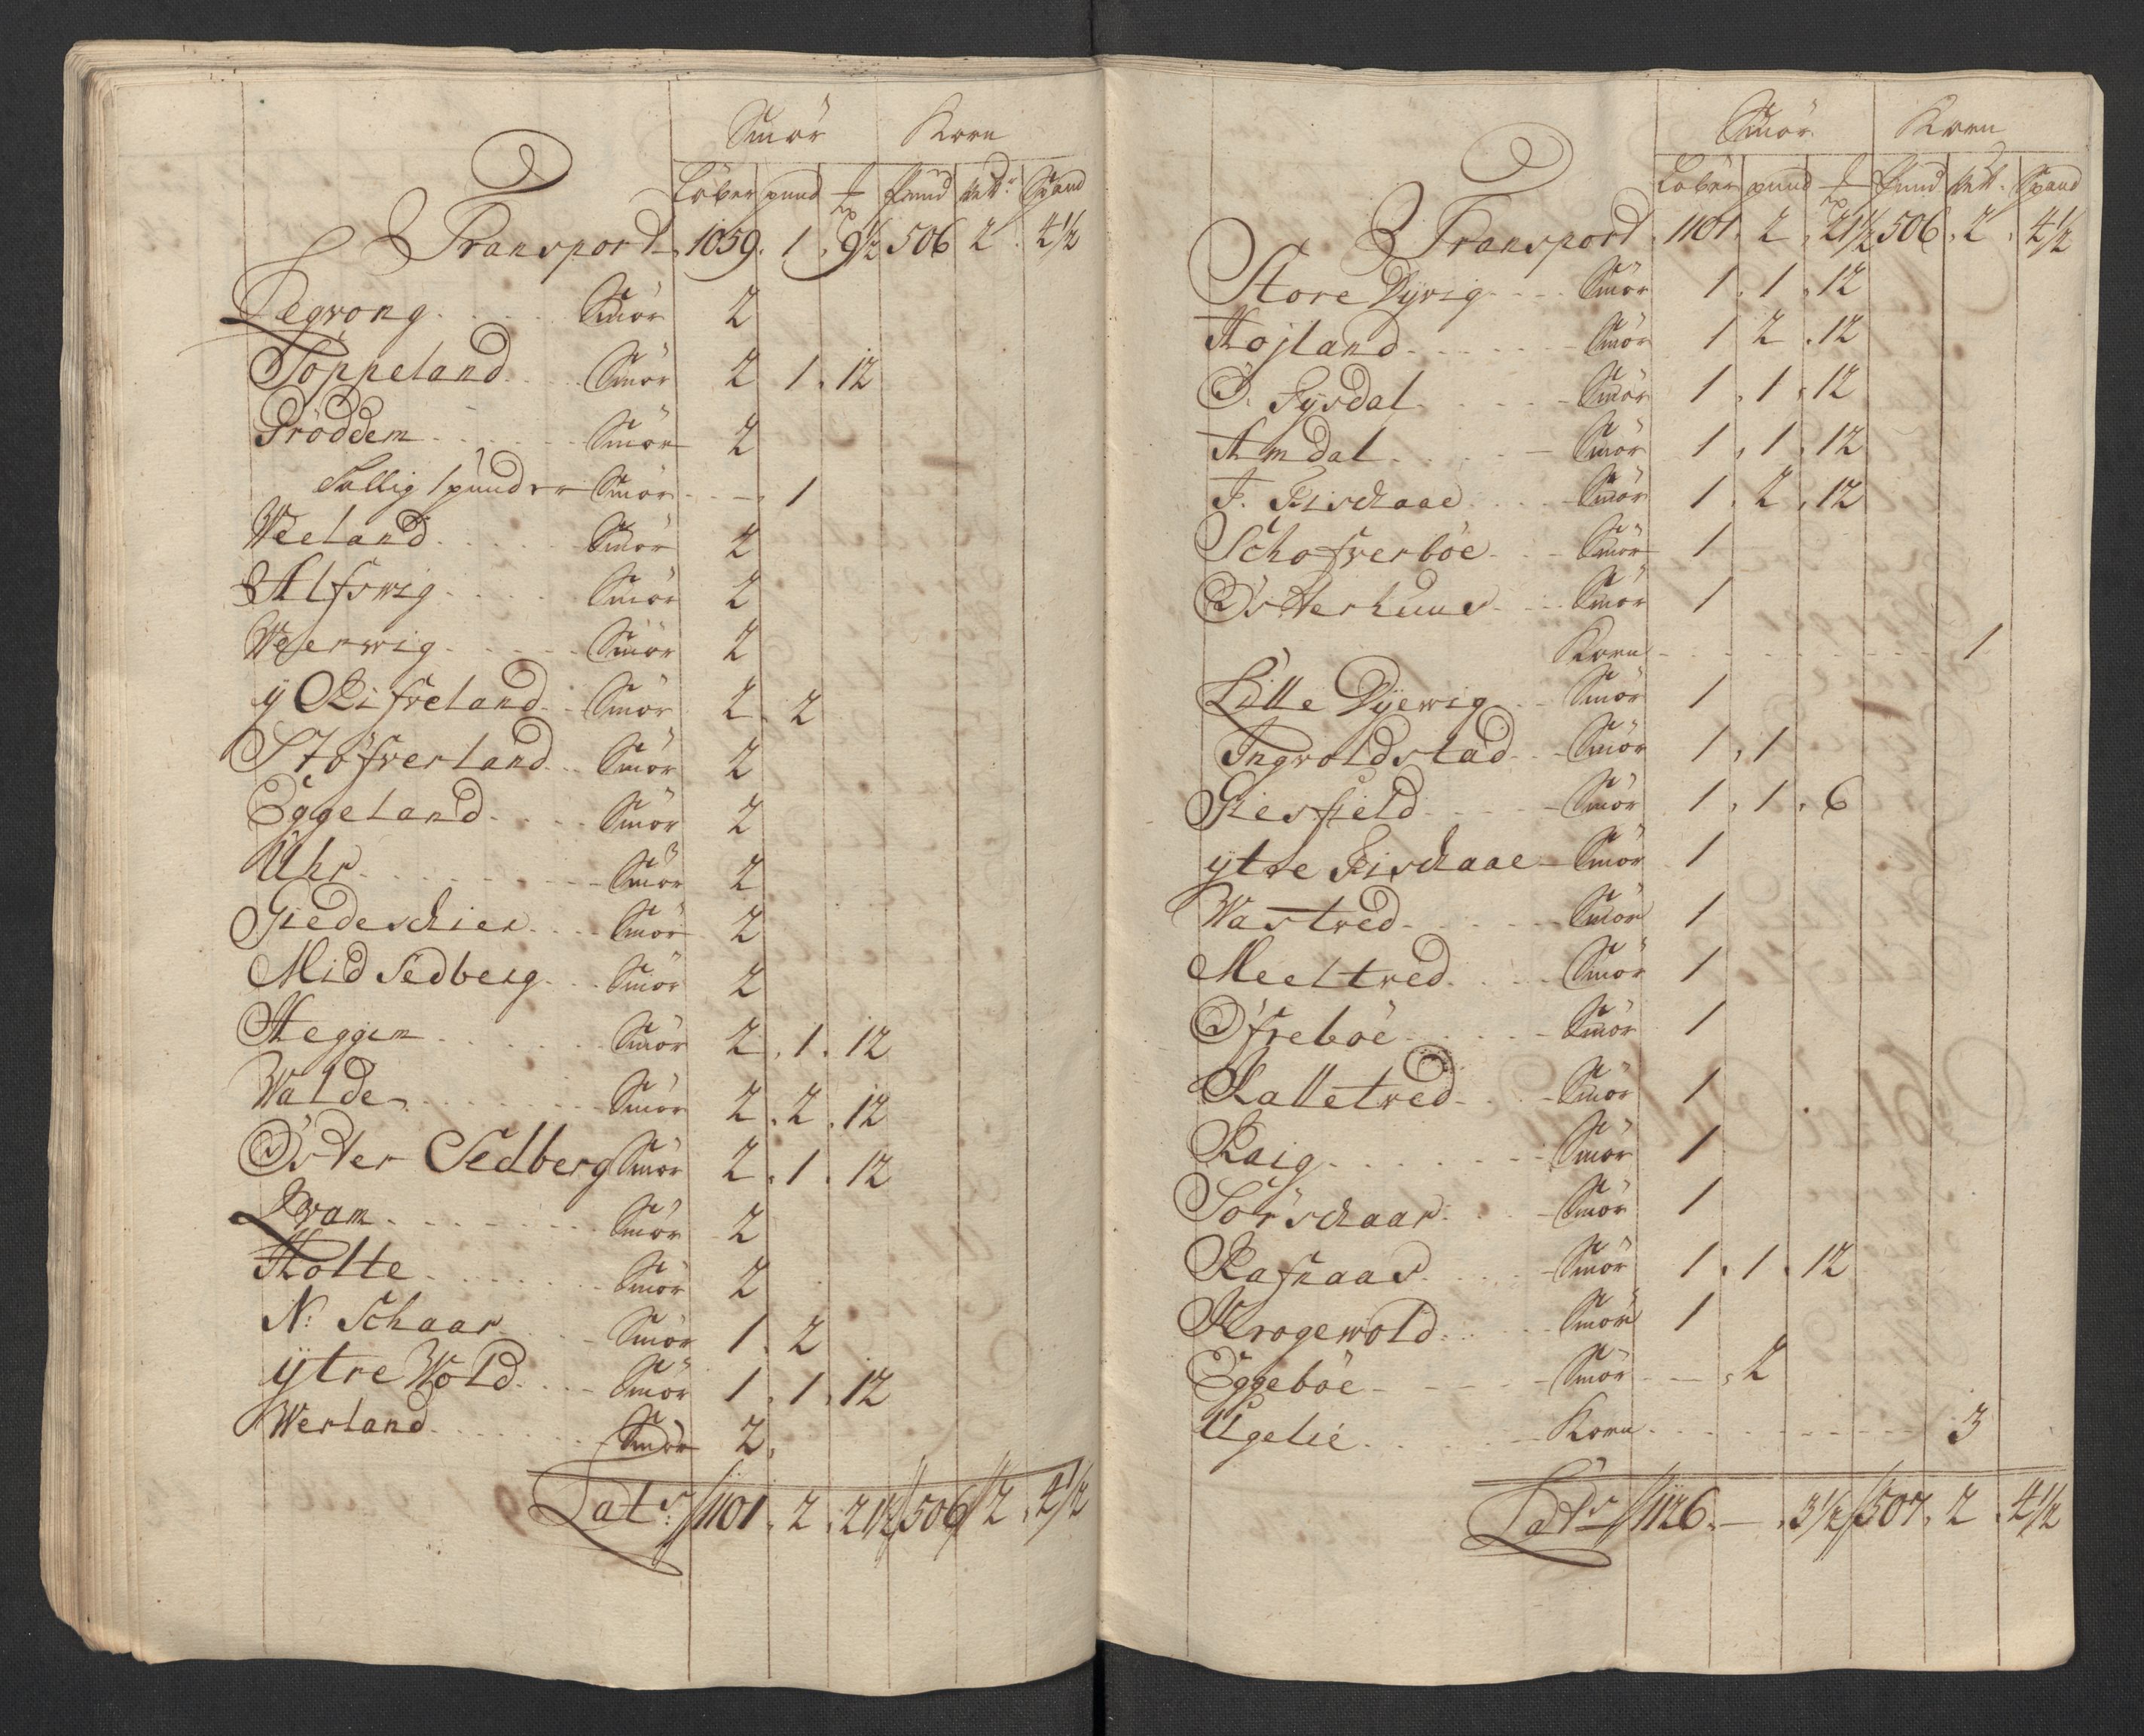 Smör Korn
Löber pund ℔ Pund Vett: Spand
Transport 1059 . 1 . 9½ 506 2 . 4½
Tegvong Smör 2
Töppeland Smör 2 . 1 . 12
Tröddem Smör 2
Sallig / punder Smör 1
Weeland Smör 2
Alfswig Smör 2
Weerwig Smör 2
y Rifveland Smör 2 . 2
Stöfverland Smör 2
Eggeland Smör 2
Uhr Smör 2
Giedeschier Smör 2
Mid Sedberg Smör 2
Heggem Smör 2 . 1 . 12
Walde Smör 2 . 2 . 12
Öster Sedberg Smör 2 . 1 . 12
Qvam Smör 2
Holte Smör 2
N: Schaar Smör 1 . 2
ÿtre Wold Smör 1 . 1 . 12
Werland Smör 2
Lat:s 1101 . 2 . 21½ 506 2 . 4½
Smör Korn
Löber pund ℔ Pund Vett. Spand
Transport 1101 . 2 . 21½ 506 . 2 . 4½
Store Dÿvig Smör 1 . 1 . 12
Højland Smör 1 2 . 12
Ö. Sÿsdal Smör 1 . 1 . 12
Amdal Smör 1 . 1 . 12
J. Rischaae Smör 1 . 2 . 12
Schofverböe Smör 1
Österhuus Smör 1
Korn 1
Lille Dÿewig Smör 1
Ingvoldstad Smör 1 . 1
Giesfield Smör 1 . 1 . 6
ÿtre Rischaae Smör 1
Wastved Smör 1
Meeltved Smör 1
Öfreböe Smör 1
Kalletved Smör 1
Raig Smör 1
Sörschaar Smör 1
Rafnaas Smör 1 . 1 . 12
Krogewold Smör 1
Eggeböe Smör 2
Ugelie Korn 3
Lat:s 1126 . — . 3½ 507 . 2 . 4½